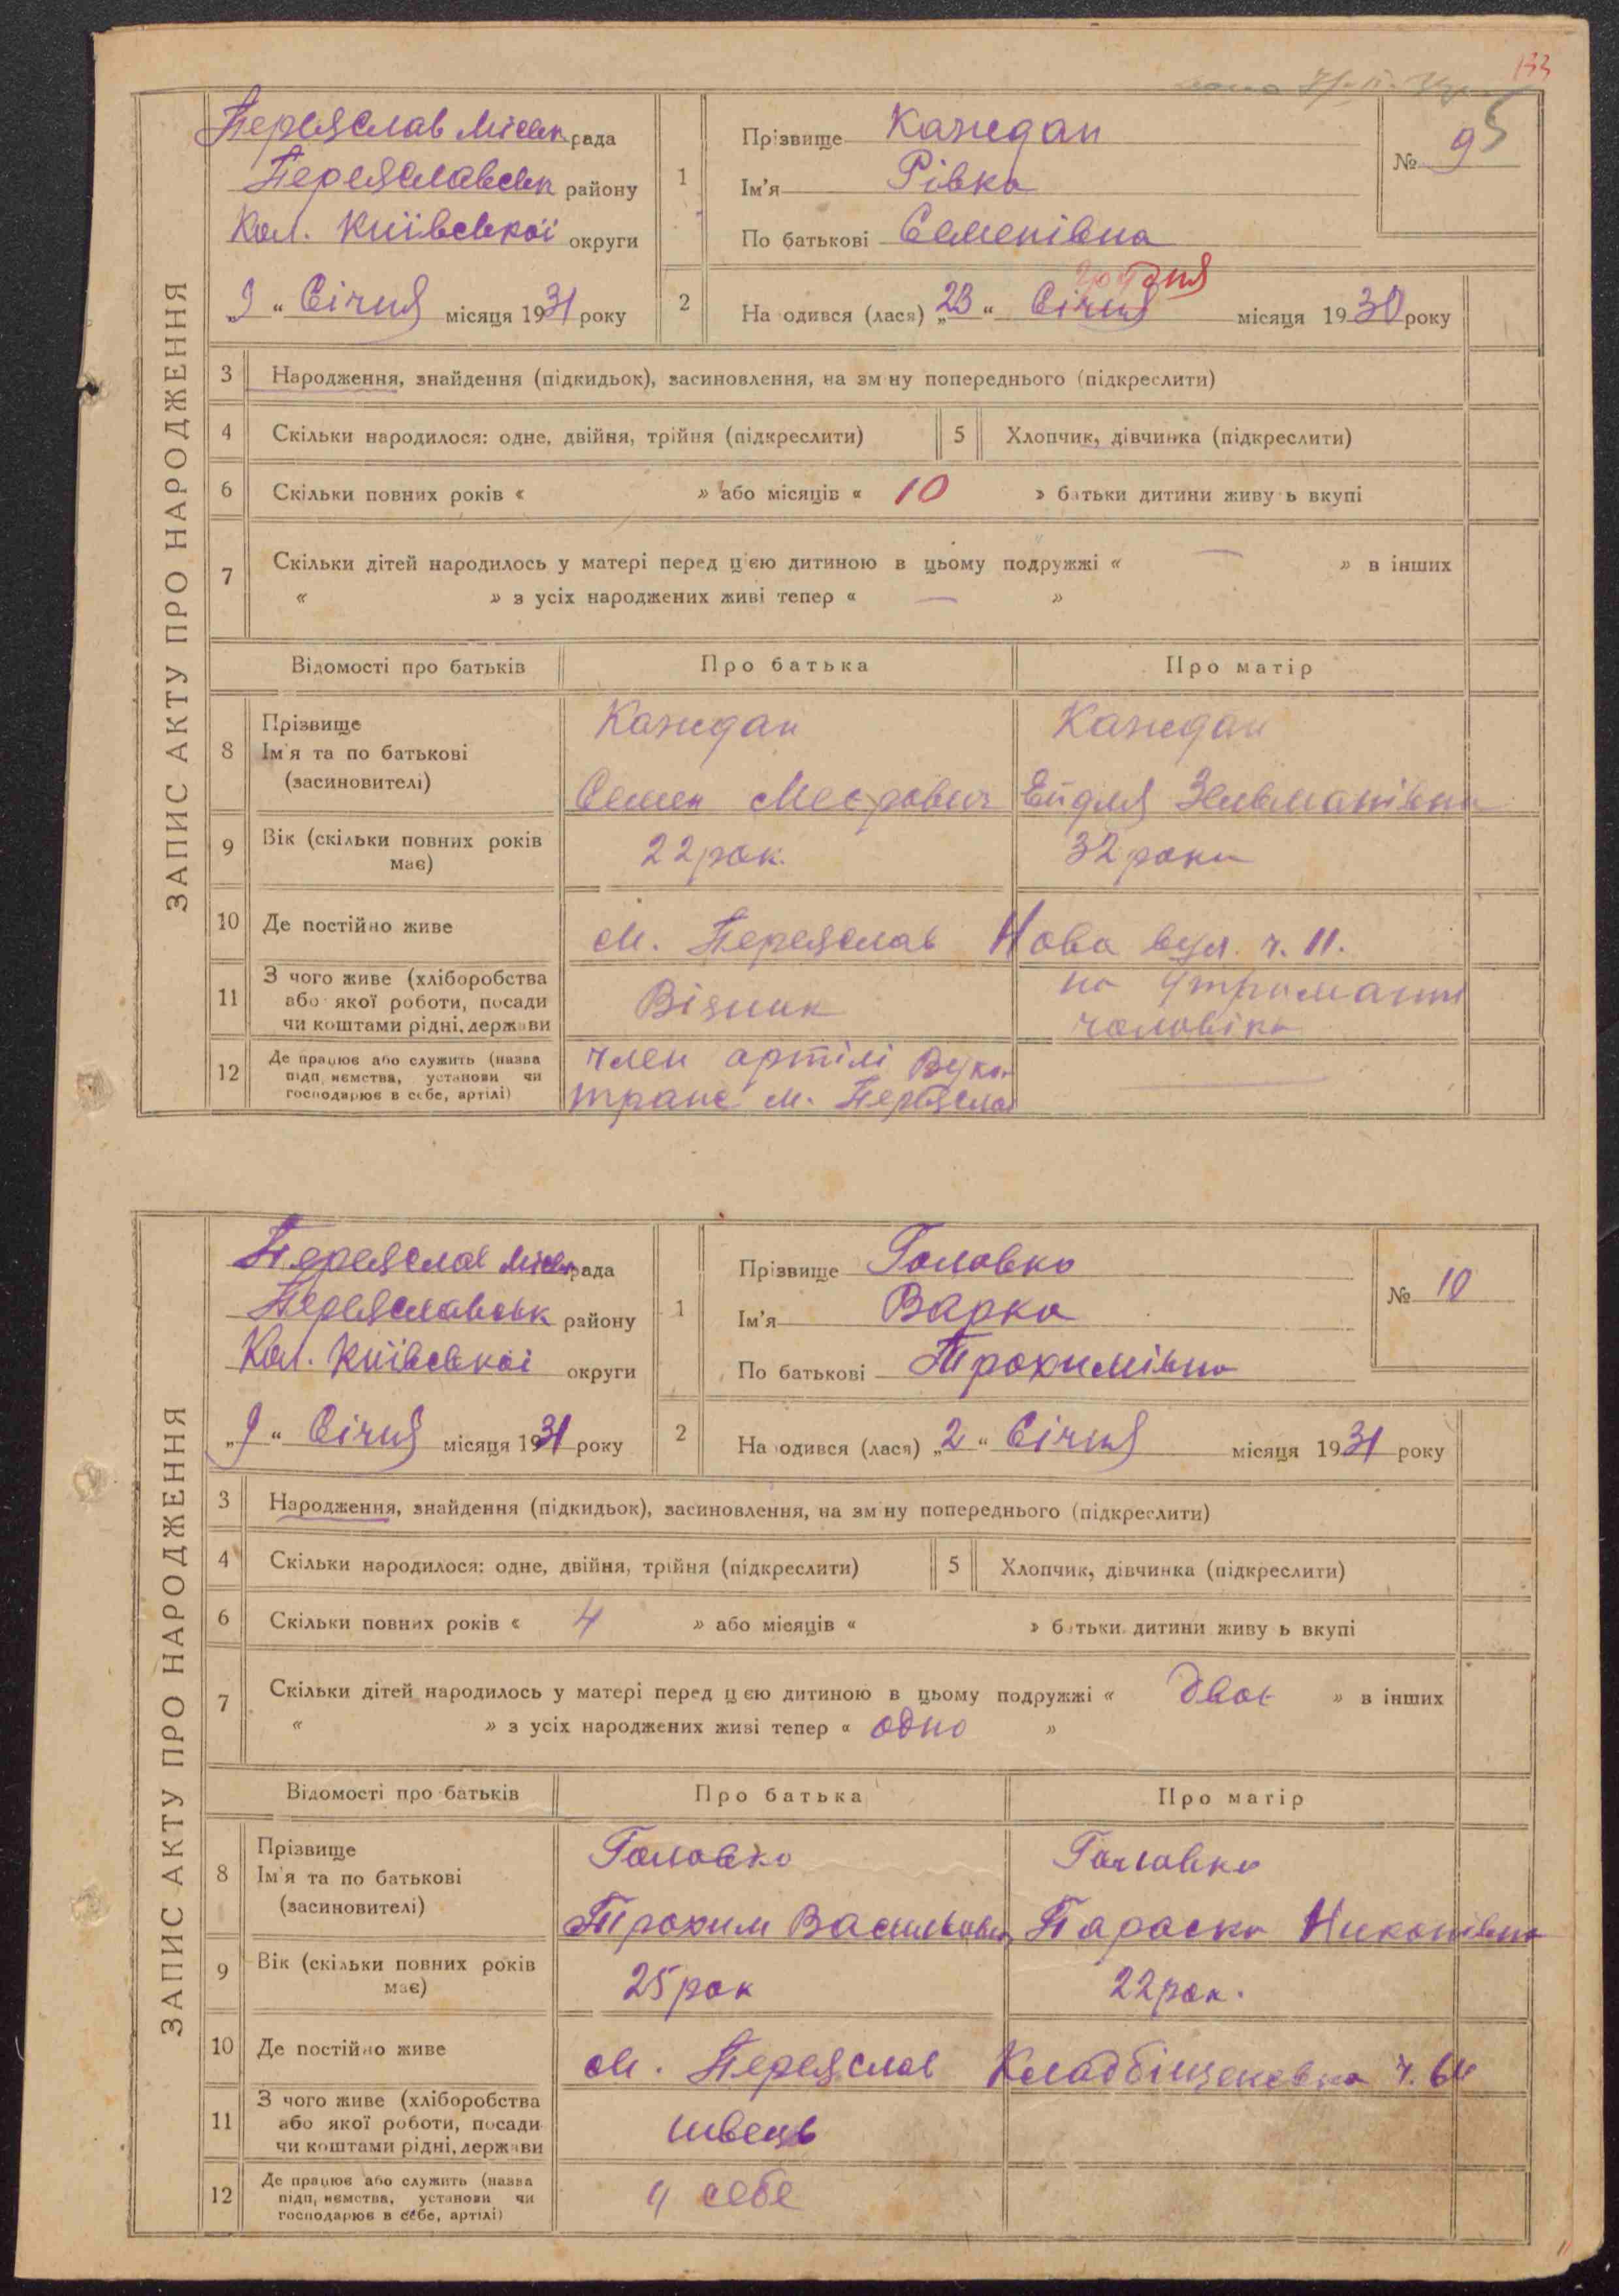 133
ЗАПИС АКТУ ПРО НАРОДЖЕННЯ
Переяслав Міськ рада
Переяславськ району
Кол. Київської округи
„9“ Січня місяця 1931 року
1 Прізвище Каждан
Ім'я Рівка
По батькові Семенівна
№ 9
2 На одився (лася) „23“ Січня грудня місяця 1930 року
3 Народження, знайдення (підкидьок), засиновлення, на зм ну попереднього (підкреслити)
4 Скільки народилося: одне, двійня, трійня (підкреслити) 5 Хлопчик, дівчинка (підкреслити)
6 Скільки повних років « » або місяців « 10 » б тьки дитини живу ь вкупі
7 Скільки дітей народилось у матері перед цією дитиною в цьому подружжі « — » в інших
« » з усіх народжених живі тепер « — »
Відомості про батьків Про батька Про матір
8 Прізвище
Ім'я та по батькові
(засиновителі)
Каждан Каждан
Семен Меєрович Ейдля Зельманівна
9 Вік (скільки повних років має) 22 рок. 32 роки
10 Де постійно живе м. Переяслав Нова вул. ч. 11.
11 З чого живе (хліборобства
або якої роботи, посади
чи коштами рідні, держави
Візник на утриманні
чоловіка
12 Де працює або служить (назва
підп, иємства, установи чи
господарює в себе, артілі)
член артілі Вуко
транс м. Переяслав
ЗАПИС АКТУ ПРО НАРОДЖЕННЯ
Переяслав Міськ рада
Переяславськ району
Кол. Київської округи
„9“ Січня місяця 1931 року
1 Прізвище Головко
Ім'я Варка
По батькові Трохимівна
№ 10
2 На одився (лася) „2“ Січня місяця 1931 року
3 Народження, знайдення (підкидьок), засиновлення, на зм ну попереднього (підкреслити)
4 Скільки народилося: одне, двійня, трійня (підкреслити) 5 Хлопчик, дівчинка (підкреслити)
6 Скільки повних років « 4 » або місяців « » б тьки дитини живу ь вкупі
7 Скільки дітей народилось у матері перед ц єю дитиною в цьому подружжі « двоє » в інших
« » з усіх народжених живі тепер « одно »
Відомості про батьків Про батька Про матір
8 Прізвище
Ім'я та по батькові
(засиновителі)
Головко Головко
Трохим Васильович Параска Никонівна
9 Вік (скільки повних років має) 25 рок 22 рок.
10 Де постійно живе м. Переяслав Кладбіщенська ч. 64
11 З чого живе (хліборобства
або якої роботи, посади
чи коштами рідні, держави
швець
12 Де працює або служить (назва
підп, иємства, установи чи
господарює в себе, артілі)
у себе